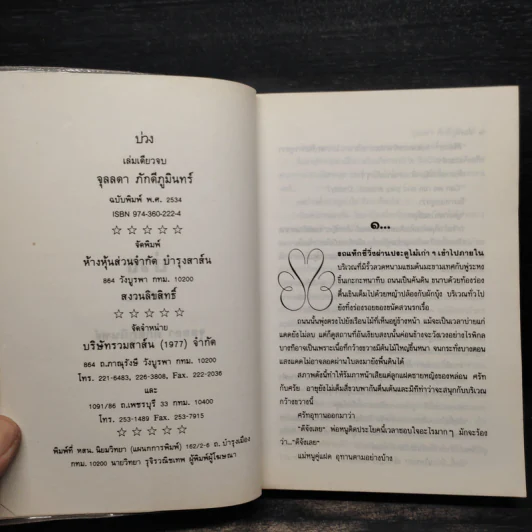 บ่วง
เล่มเดียวจบ
จุลลดา ภักดีภูมินทร์
ฉบับพิมพ์ พ.ศ. 2534
ISBN 974-360-222-4
☆ ☆ ☆ ☆ ☆
จัดพิมพ์
ห้างหุ้นส่วนจำกัด บำรุงสาส์น
864 วังบูรพา กทม. 10200
สงวนลิขสิทธิ์
☆ ☆ ☆ ☆ ☆
จัดจำหน่าย
บริษัทรวมสาส์น (1977) จำกัด
864 ถ.ภาณุรังษี วังบูรพา กทม. 10200
โทร. 221-6483, 226-3808, Fax. 222-2036
และ
1091/86 ถ.เพชรบุรี 33 กทม. 10400
โทร. 253-1489 Fax. 253-7915
☆ ☆ ☆ ☆ ☆
พิมพ์ที่ หสน. นิยมวิทยา (แผนกการพิมพ์) 162/2-6 ถ.บำรุงเมือง
กทม. 10200 นายวิทยา รุจิรวณิชเทพ ผู้พิมพ์ผู้โฆษณา
๑...
รถแท็กซี่วิ่งผ่านประตูไม้เก่า ๆ เข้าไปภายใน
บริเวณที่มีรั้วลวดหนามแซมต้นมะขามเทศกับพู่ระหง
ขึ้นเกะกะหนาทึบ ถนนเป็นคันดิน ขนาบด้วยท้องร่อง
ตื้นเขินเต็มไปด้วยหญ้าปล้องกับผักบุ้ง บริเวณทั่วไป
ยังทิ้งร่องรอยของนัดสวนรกเรื้อ
ถนนนั้นพุ่งตรงไปยังเรือนไม้ที่เห็นอยู่ข้างหน้า แม้จะเป็นเวลาบ่ายแก่
แดดยังไม่ลบ แต่ก็ดูสถานที่อันเงียบสงบนั้นค่อนข้างจะวังเวงอย่างไรพิกล
บางทีอาจเป็นเพราะเนื้อที่กว้างขวางมีต้นไม้ใหญ่ขึ้นหนา จนกระทั่งบางตอน
แสงแดดไม่อาจลอดผ่านใบลงมายังพื้นดินได้
สภาพดังนี้ทำให้ริมภาพน่าเสียแต่ลูกแฝดชายหญิงของหล่อน ศรัท
กับศรัย อายุยังไม่เต็มสี่ขวบพากันตื่นเต้นและมีทีท่าว่าจะสนุกกับบริเวณ
กว้างขวางนี้
ศรัทอุทานออกมาว่า
"ดีจังเลย" พ่อหนูติดประโยคนี้เวลาชอบใจอะไรมากๆ มักจะร้อง
ว่า..."ดีจังเลย"
แม่หนูคู่แฝด อุทานตามอย่างบ้าง